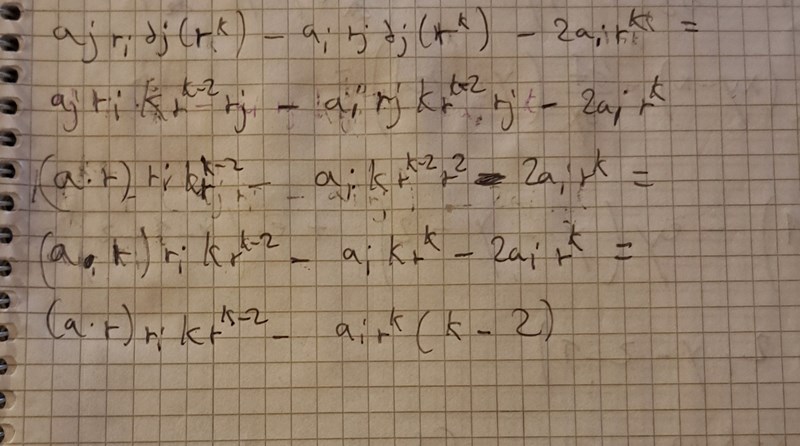 a_j r_i ∂_j(r^k) - a_i r_j ∂_j(r^k) - 2a_i r^k =
a_j r_i k r^{k-2} r_j - a_i r_j k r^{k-2} r_j - 2a_i r^k
(a·r) r_i k r^{k-2} - a_i k r^{k-2} r^2 - 2a_i r^k =
(a·r) r_i k r^{k-2} - a_i k r^k - 2a_i r^k =
(a·r) r_i k r^{k-2} - a_i r^k (k - 2)